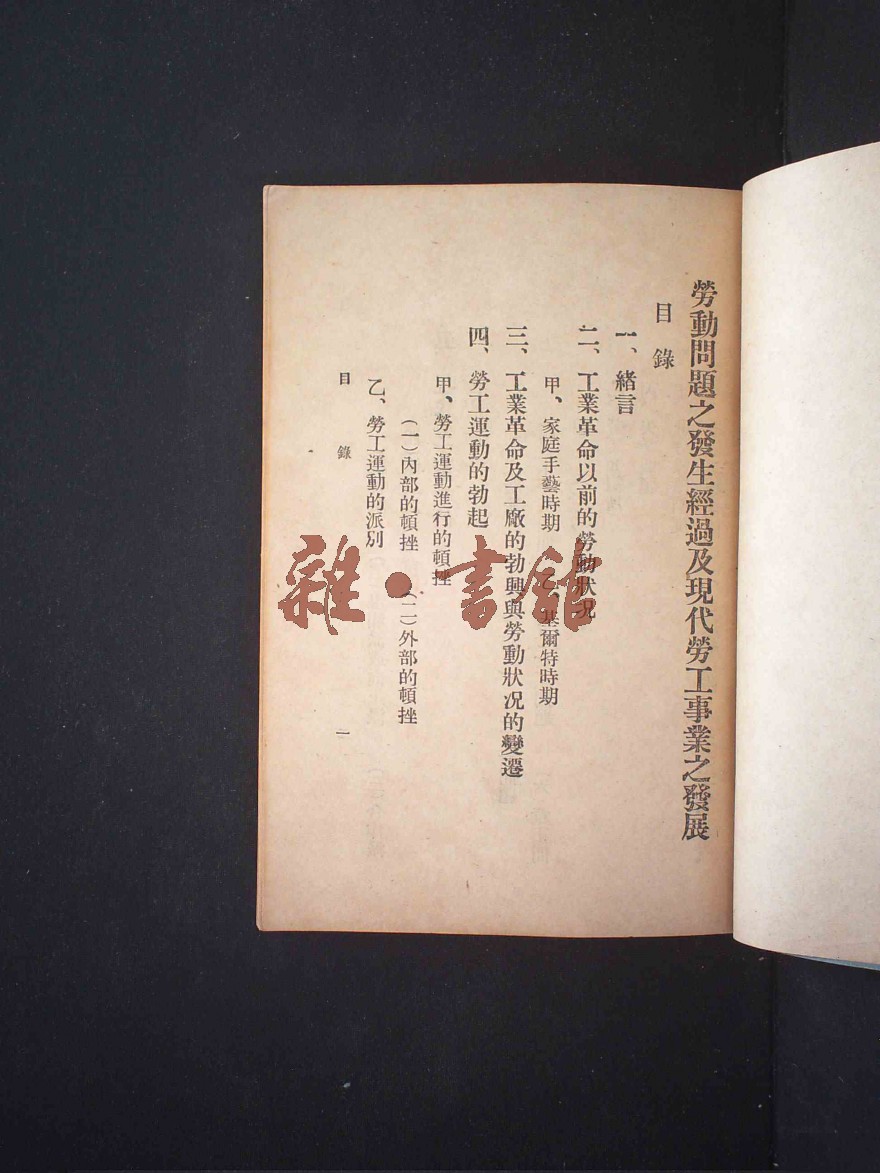 勞動問題之發生經過及現代勞工事業之發展
目錄
一、緒言
二、工業革命以前的勞動狀況
甲、家庭手藝時期 、基爾特時期
三、工業革命及工廠的勃興與勞動狀況的變遷
四、勞工運動的勃起
甲、勞工運動進行的頓挫
（一）內部的頓挫 （二）外部的頓挫
乙、勞工運動的派別
目錄 一
雜·書館